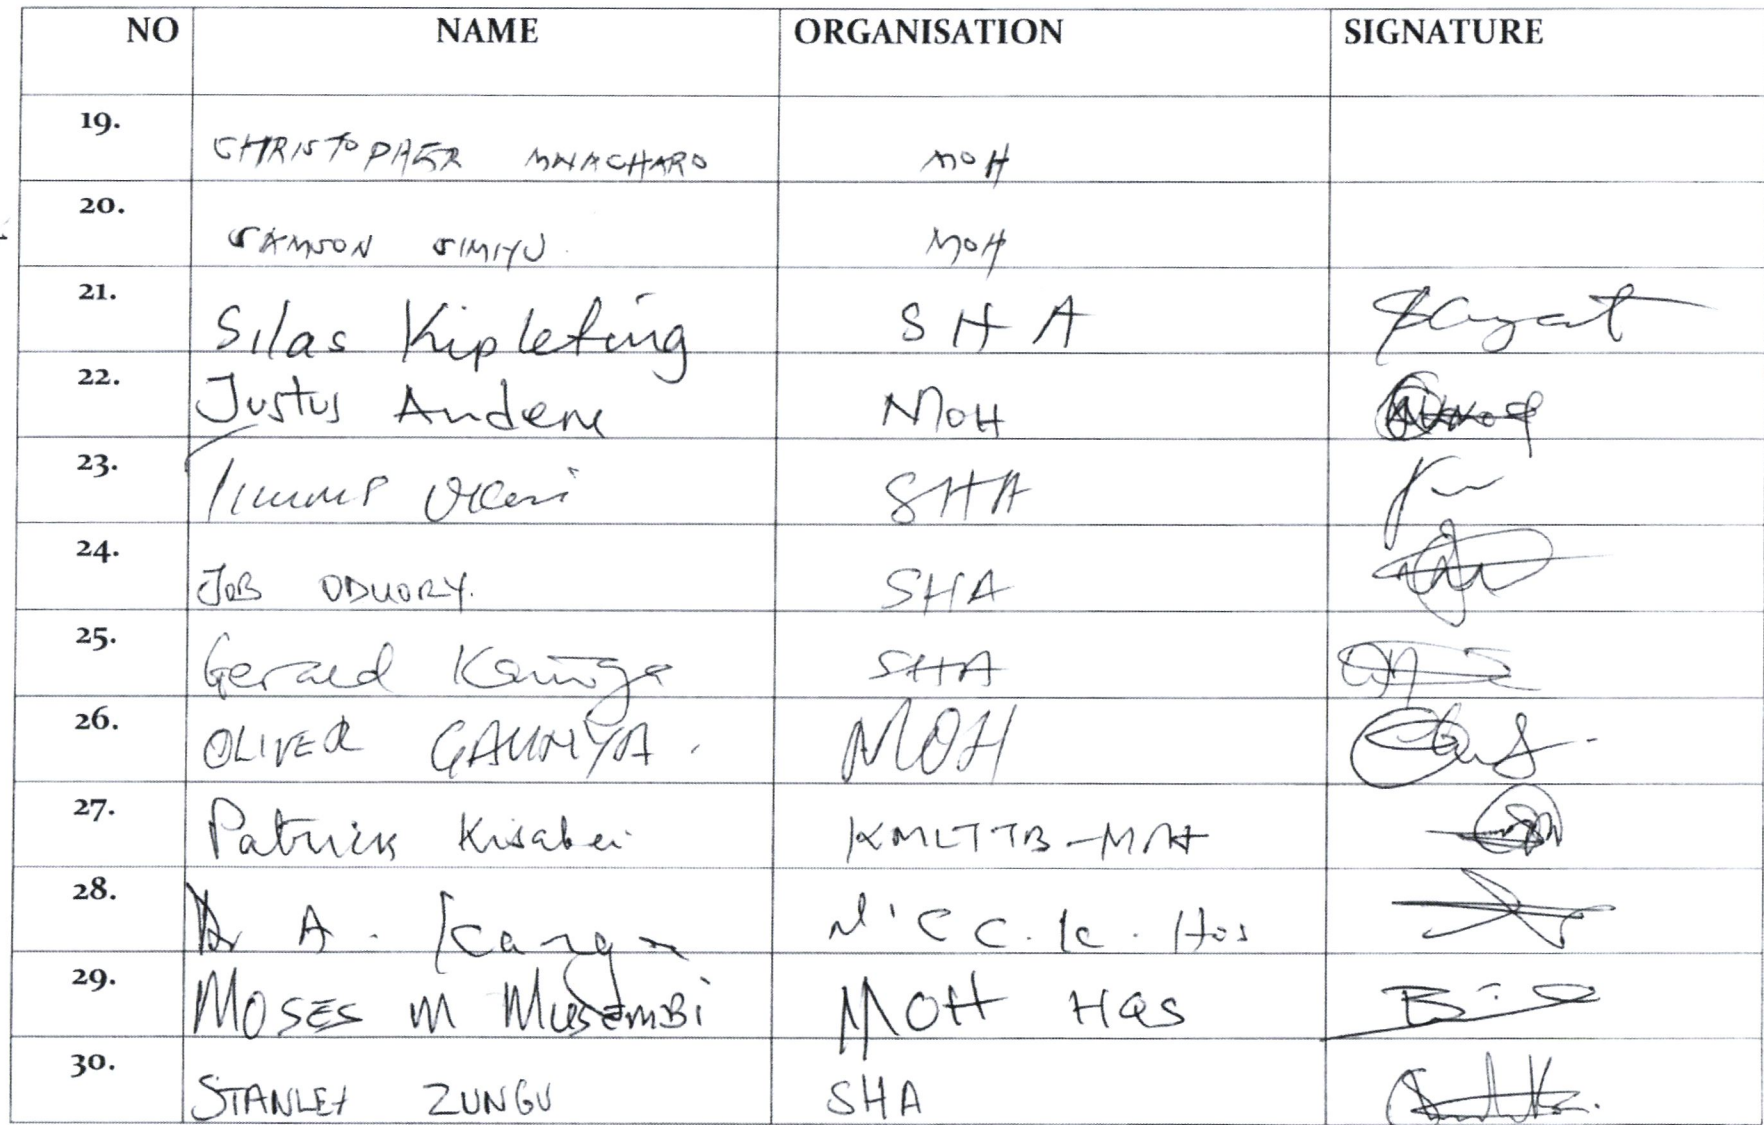 NO NAME ORGANISATION SIGNATURE
19. CHRISTOPHER MWACHARO MOH
20. SAMSON SIMIYU MOH
21. Silas Kipleting SHA
22. Justus Andere MOH
23. SHA
24. JOB ODUORY. SHA
25. Gerald SHA
26. OLIVER GAUNYA. MOH
27. Patrick Kisabei KMLTTB-
28. Dr A. Hos
29. MOSES M MUSEMBI MOH HQS
30. STANLEY ZUNGU SHA